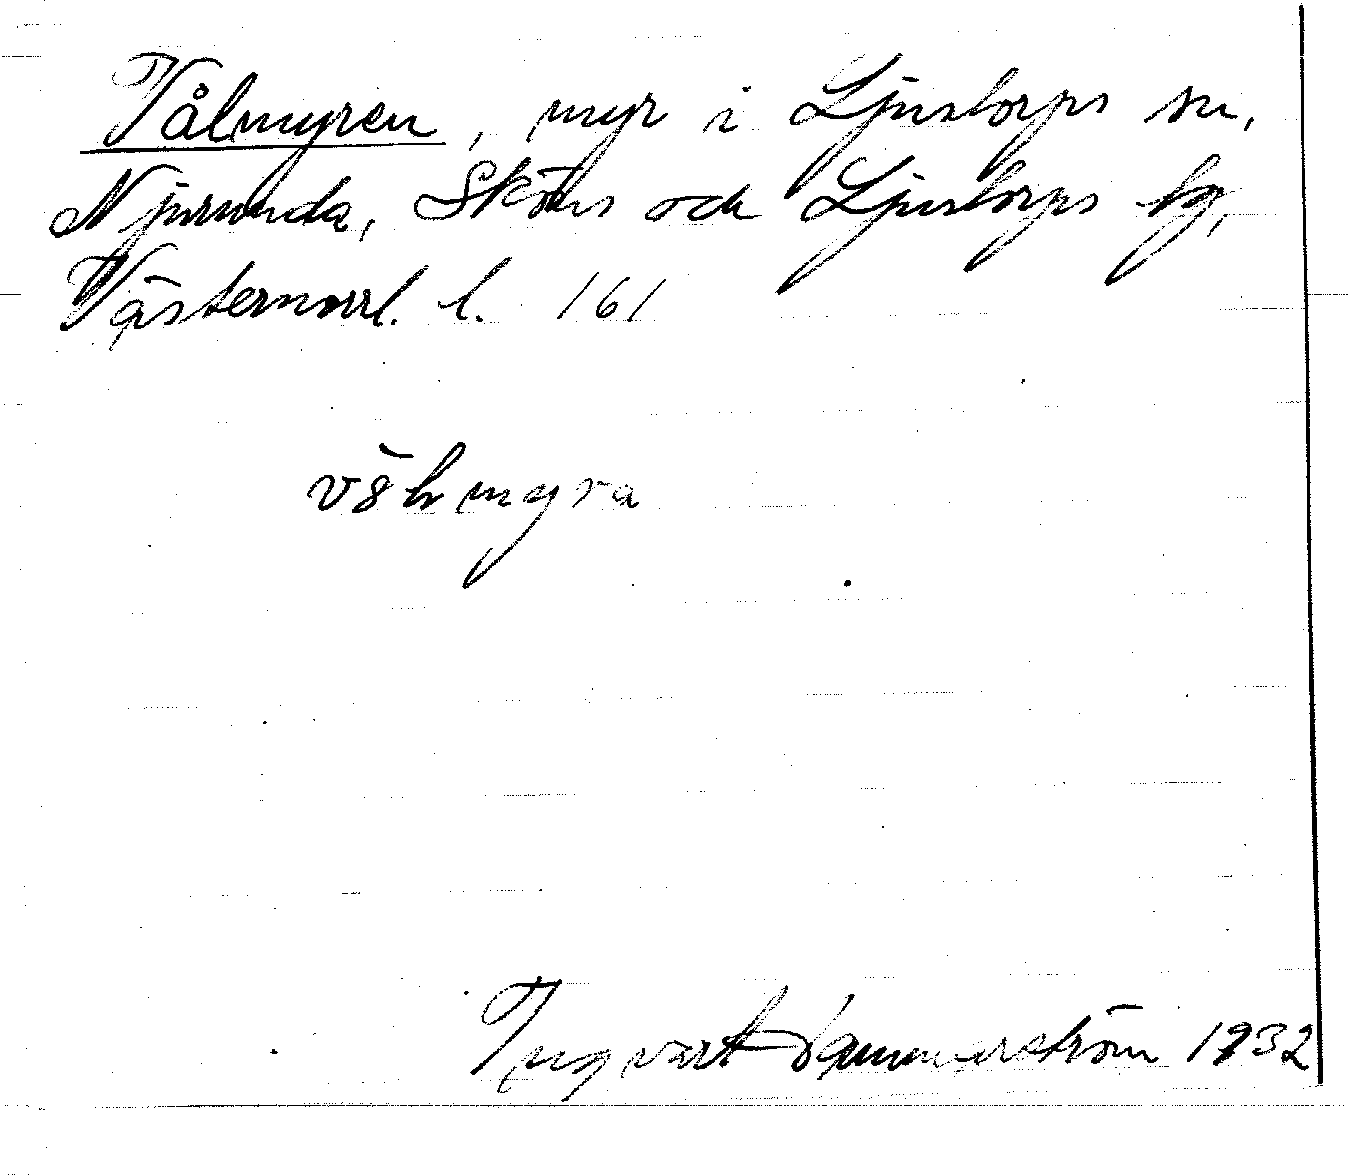 Vålmyren, myr i Ljustorps sn,
Njurunda, Sköns och Ljustorps tg,
Västernorrl. l. 161
myra
Ingvart 1932